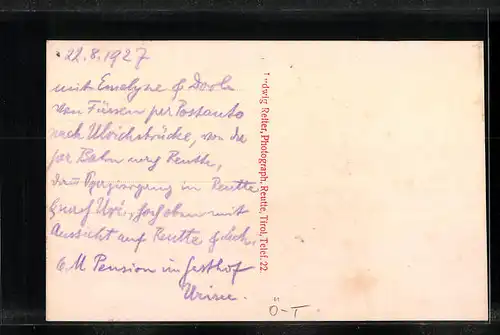 22.8.1927
mit Emelyne &
von Füssen per Postauto
nach Ulrichsbrücke, von da
per Bahn nach Reutte,
Spaziergang in Reutte
hoch oben mit
Aussicht auf Reutte &
6 M Pension im Gasthof
Ludwig Reiter, Photograph, Reutte, Tirol, Telef. 22.
O-T